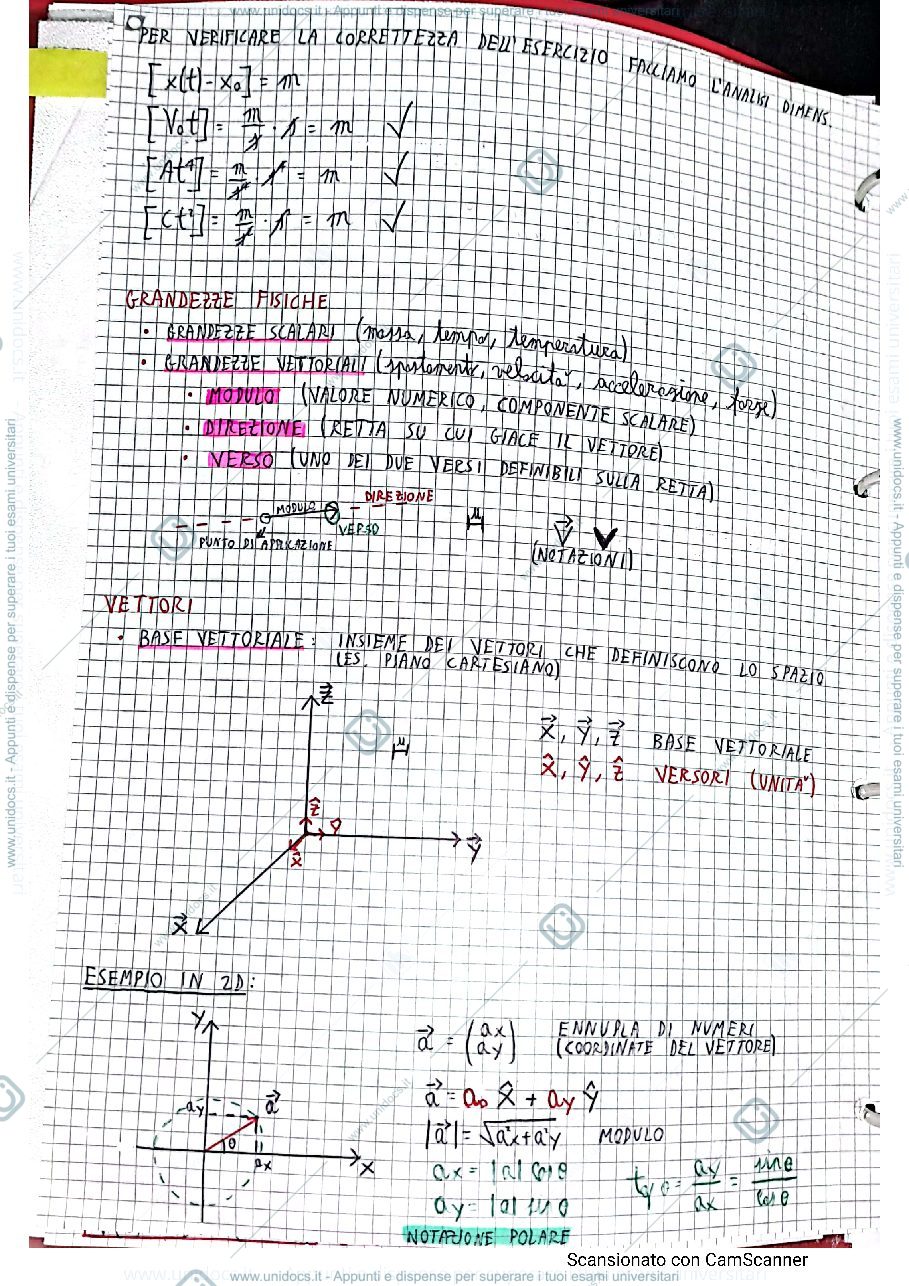 www.unidocs.it - Appunti e dispense per superare i tuoi esami universitari
PER VERIFICARE LA CORRETTEZZA DELL'ESERCIZIO FACCIAMO L'ANALISI DIMENS.
[x(t)-x₀] = m
[V₀t] = m/s · s = m ✓
[At⁴] = m/s⁴ · s⁴ = m ✓
[Ct²] = m/s² · s² = m ✓
GRANDEZZE FISICHE
• GRANDEZZE SCALARI (massa, tempo, temperatura)
• GRANDEZZE VETTORIALI (spostamento, velocità, accelerazione, forze)
• MODULO (VALORE NUMERICO, COMPONENTE SCALARE)
• DIREZIONE (RETTA SU CUI GIACE IL VETTORE)
• VERSO (UNO DEI DUE VERSI DEFINIBILI SULLA RETTA)
MODULO DIREZIONE
VERSO
PUNTO DI APPLICAZIONE
(NOTAZIONI)
VETTORI
• BASE VETTORIALE: INSIEME DEI VETTORI CHE DEFINISCONO LO SPAZIO
(ES. PIANO CARTESIANO)
z⃗
x⃗, y⃗, z⃗ BASE VETTORIALE
x̂, ŷ, ẑ VERSORI (UNITA')
ẑ
x̂
y⃗
x⃗
ESEMPIO IN 2D:
y
a⃗ = (ax ay) ENNUPLA DI NUMERI
(COORDINATE DEL VETTORE)
ay a⃗
θ
ax x
a⃗ = a₀ x̂ + ay ŷ
|a⃗| = √a²x+a²y MODULO
ax = |a| cos θ
ay = |a| sin θ
tg θ = ay/ax = sin θ/cos θ
NOTAZIONE POLARE
Scansionato con CamScanner
www.unidocs.it - Appunti e dispense per superare i tuoi esami universitari